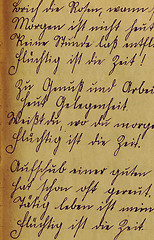 brich die Rosen, wann s
Morgen ist nicht heut
Keine Stunde laß entfl
Flüchtig ist die Zeit!
Zu Genuß und Arbei
heut Gelegenheit
Weißt du, wo du morge
Flüchtig ist die Zeit.
Aufschub einer guten
hat schon oft gereut.
Tätig leben ist mein
Flüchtig ist die Zeit.